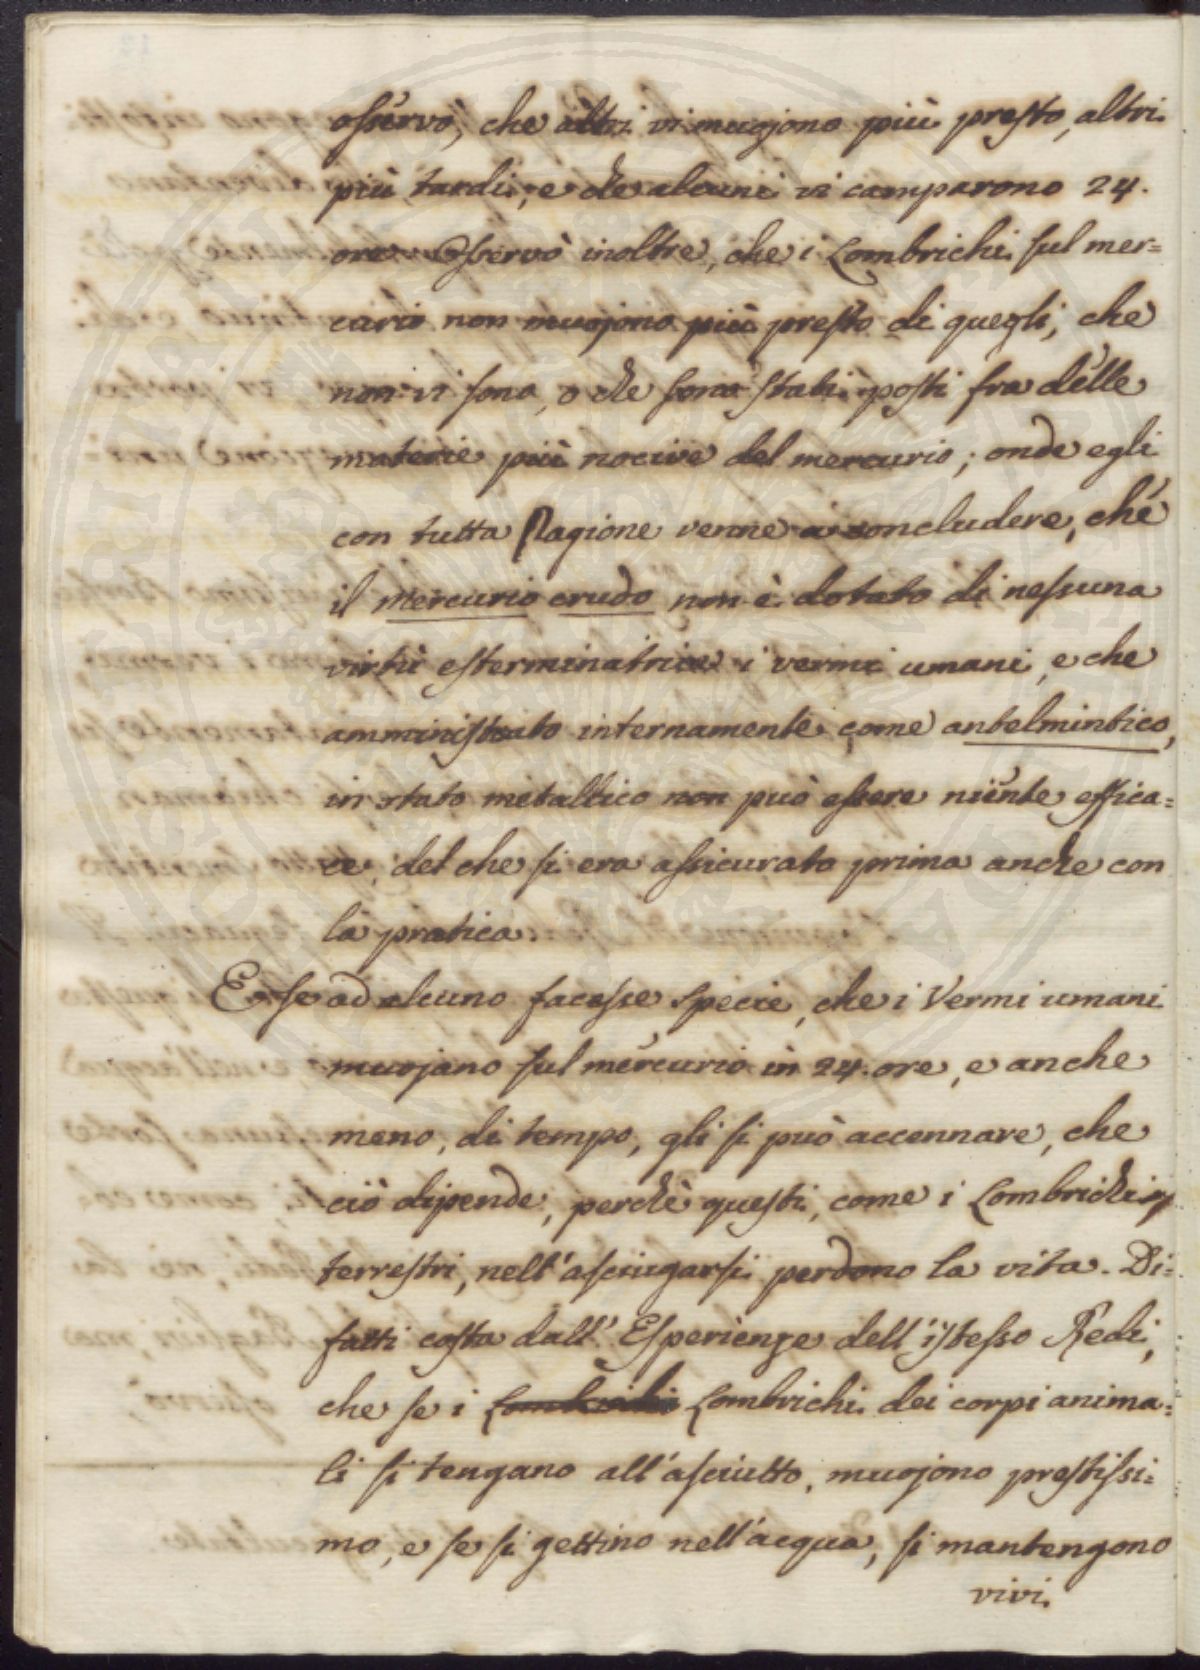 osservò, che altri vi muojono più presto, altri
più tardi, e che alcuni vi camparono 24.
ore. Osservò inoltre, che i Lombrichi sul mer=
curio non muojono più presto di quegli, che
non vi sono, o che sono stati posti fra delle
materie più nocive del mercurio; onde egli
con tutta Ragione venne a concludere, che
il Mercurio crudo non è dotato di nessuna
virtù esterminatrice i vermi umani, e che
amministrato internamente come antelmintico,
in stato metallico non può essere niente effica=
ce, del che si era assicurato prima anche con
la pratica.
E se ad alcuno facesse specie, che i Vermi umani
muojano sul mercurio in 24. ore, e anche
meno, di tempo, gli si può accennare, che
ciò dipende, perchè questi, come i Lombrichi
terrestri, nell'asciugarsi perdono la vita. Di=
fatti costa dall'Esperienze dell'istesso Redi,
che se i Lombrichi Lombrichi dei corpi anima=
li si tengano all'asciutto, muojono prestissi=
mo, e se si gettino nell'acqua, si mantengono
vivi.